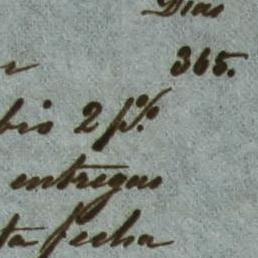 Dias
r 365.
bio 2 p%.
entregas
ta fecha